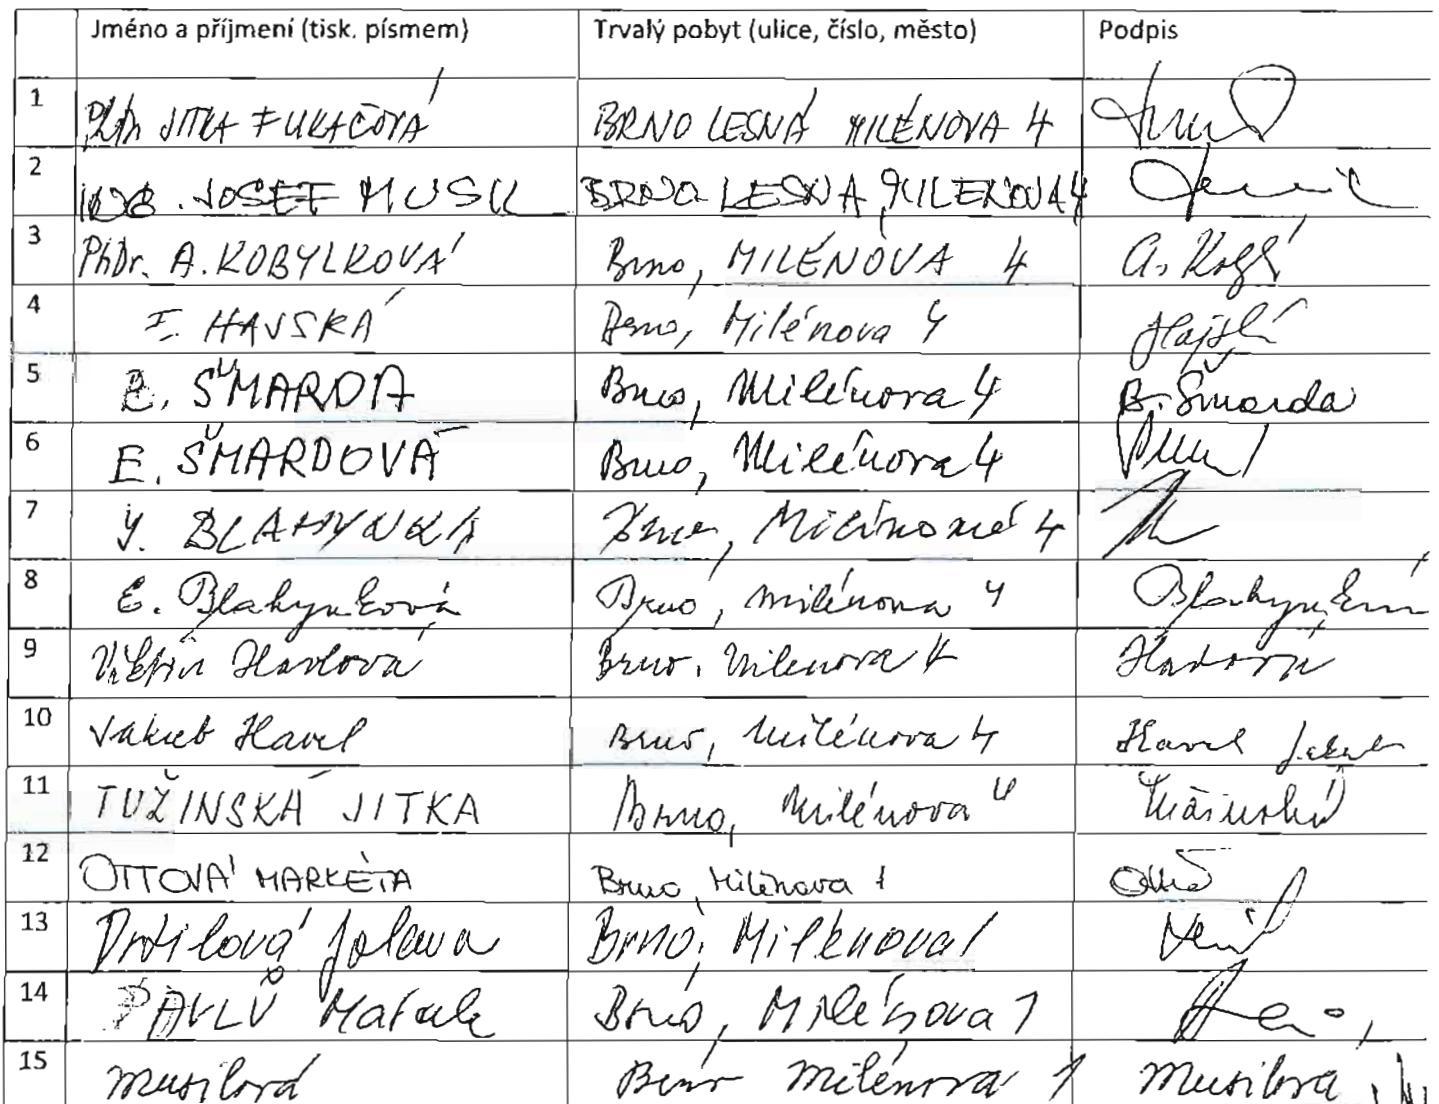 Jméno a příjmení (tisk. písmem) Trvalý pobyt (ulice, číslo, město) Podpis
1 JITKA FUKAČOVÁ BRNO LESNÁ MILÉNOVA 4
2 JOSEF MUSIL BRNO LESNA MILENOVA 4
3 PhDr. A. KOBYLKOVÁ Brno, MILÉNOVA 4
4 HAVSKÁ Brno, Milénova 4
5 B. ŠMARDA Brno, Milénova 4 B. Šmarda
6 E. ŠMARDOVÁ Brno, Milénova 4
7 BLAHYNKA 4
8 E. Blahynková Brno, Milénova 4 Blahynková
9 Havlová Brno, Milenova 4
10 Jakub Havel Brno, Milénova 4 Havel Jakub
11 TUŽINSKÁ JITKA Brno, Milénova 4 Tužinská
12 OTTOVÁ MARKÉTA Brno, Milénova 1
13 Vrtilová Brno, Milénova 1
14 PAVLŮ Brno, Milénova 1
15 Musilová Brno Milénova 1 Musilová